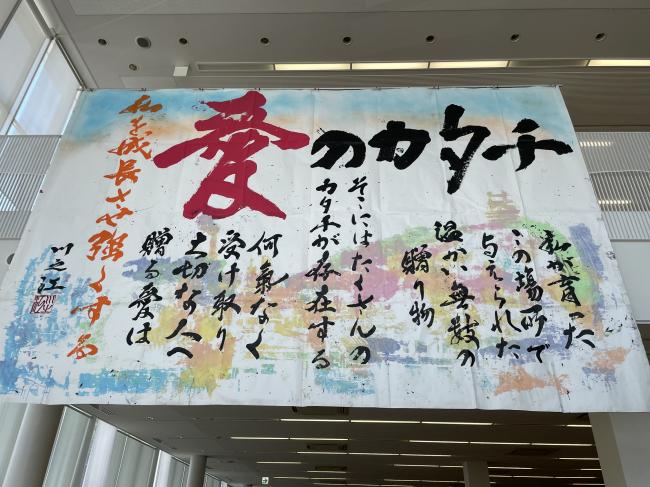 愛のカタチ
私が育った
この場所で
与えられた
温かい無数の
贈り物
そこにはたくさんの
カタチが存在する
何氣なく
受け取り
大切な人へ
贈る愛は
私を成長させ強くする
川之江